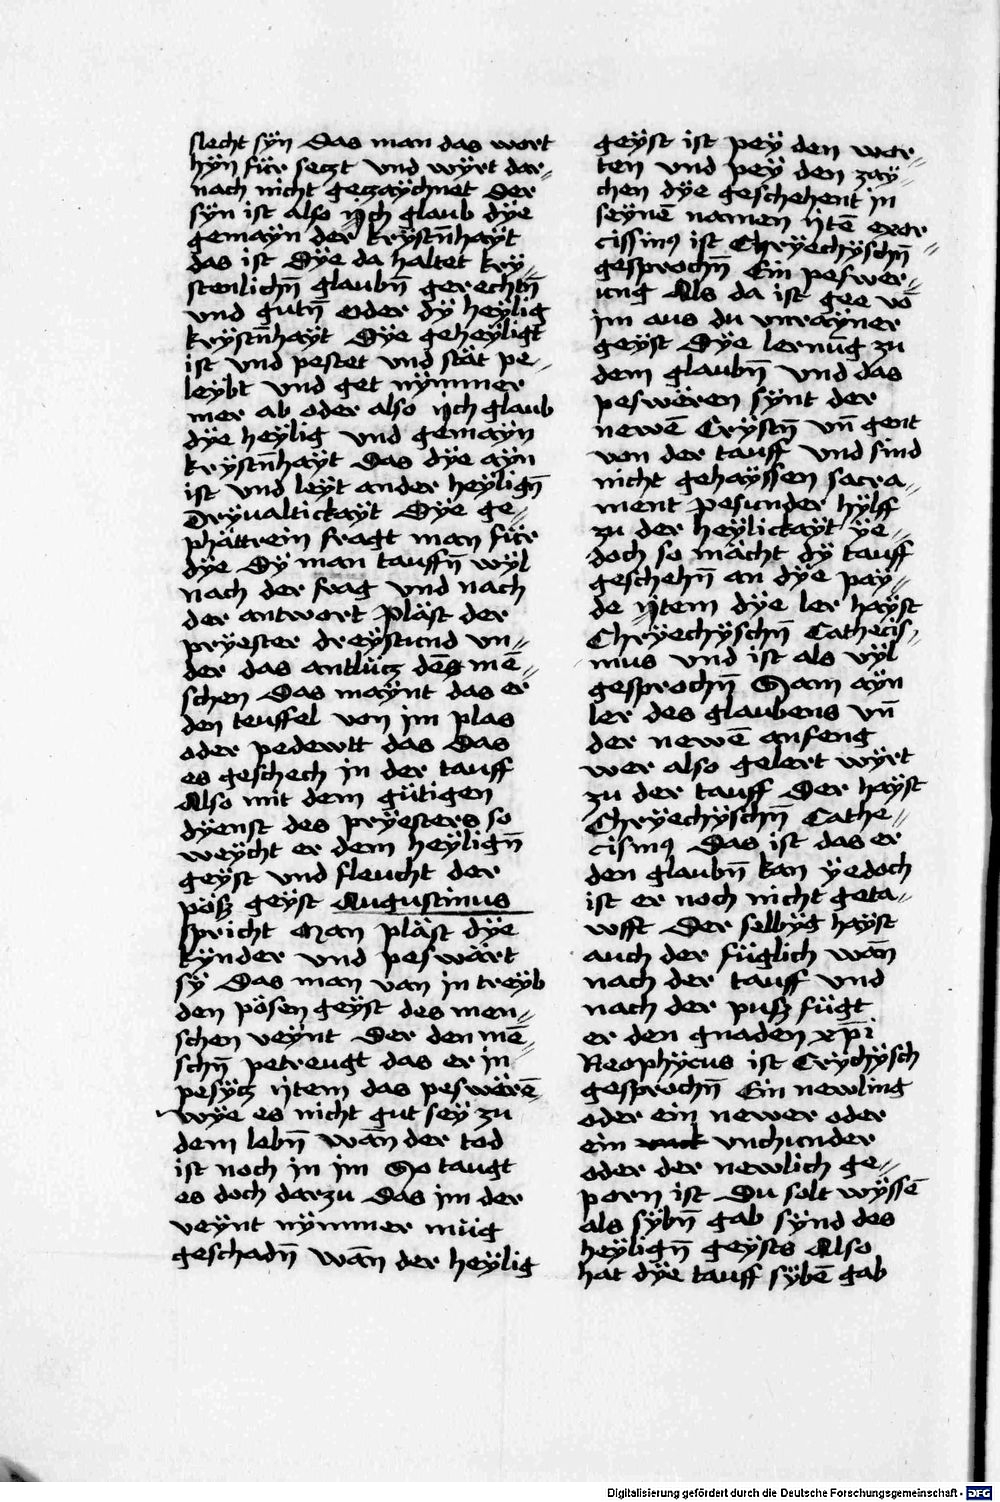 slecht sÿn Das man das wort
hÿn für seczt vnd wÿrt dar⸗
nach nicht geczäÿchnet Der
sÿn ist also ÿch glaub dÿe
gemaÿn der krÿstn̄haÿt
das ist Dÿe da haltet krÿ⸗
stenlichn̄ glaubn̄ gerechtn̄
vnd gutn̄ oder dÿ heÿlig
krÿstn̄haÿt Dÿe geheÿligt
ist vnd pestet vnd stät pe⸗
leÿbt vnd get nÿmmer
mer ab oder also ÿch glaub
dÿe heÿlig vnd gemaÿn
krÿstn̄haÿt Das dÿe aÿn
ist vnd leÿt ander heÿlign̄
Drÿualtickaÿt Dÿe ge⸗
phättrein fragt man für
dÿe Dÿ man tauffn̄ wÿl
nach der frag vnd nach
der antwort Pläst der
prÿester dreÿstund vn⸗
der das antlücz des mē⸗
schen Das maÿnt das er
den teuffel von jm plas
oder pedewtt das Das
es geschech in der tauff
Also mit dem gütigen
dÿenst des prÿesters so
weÿcht er dem heÿlign̄
geÿst vnd fleucht der
pösz geÿst Augustinus
spricht Man pläst dÿe
kÿnder vnd peswärt
sÿ Das man van in treÿb
den pösen geÿst des men⸗
schen veÿnt Der den mē⸗
schn̄ petreugt das er in
pesÿcz ÿtem das peswerē
wÿe es nicht gut seÿ zu
dem lebn̄ wān der tod
ist noch in im So taugt
es doch darzu Das im der
veÿnt nÿmmer müg
geschadn̄ wān der heÿlig
geÿst ist peÿ den wor⸗
ten vnd peÿ den zäÿ⸗
chen dÿe geschehent in
seÿnē namen ÿtē exor⸗
cissimꝯ ist Chrÿechÿschn̄
gesprochn̄ Ein peswer⸗
ung Als da ist gee vō
jm aus du vnraÿner
geÿst Dÿe lernūg zu
dem glaubn̄ vnd das
pesweren sÿnt der
newē Crÿstn̄ vn̄ gent
von der tauff vnd sind
nicht gehaÿssen sacra⸗
ment Pesunder hÿlff
zu der heÿlickaÿt ÿe⸗
doch so mächt dÿ tauff
geschehn̄ an dÿe paÿ⸗
de ÿtem dÿe ler haÿst
Chrÿechÿschn̄ Cathecis⸗
mus vnd ist als vÿl
gesprochn̄ Sam aÿn
ler des glaubens vn̄
der newē anfeng
wer also gelert wÿrt
zu der tauff Der haÿst
Chrÿechÿschn̄ Cathe⸗
cismꝯ Das ist das er
den glaubn̄ kan ÿedoch
ist er noch nicht geta⸗
wfft Der selbÿg haÿst
auch der füglich wān
nach der tauff vnd
nach der pusz fügt
er den gnaden xp̄i
Neophÿcus ist Crÿchÿsch
gesprochn̄ Ein newling
oder ein newer oder
ein vnchunder
oder der newlich ge⸗
porn ist Du solt wÿssē
als sÿbn̄ gab sÿnd des
heÿlign̄ geÿsts Also
hat dÿe tauff sÿbē gab
Digitalisierung gefördert durch die Deutsche Forschungsgemeinschaft - DFG